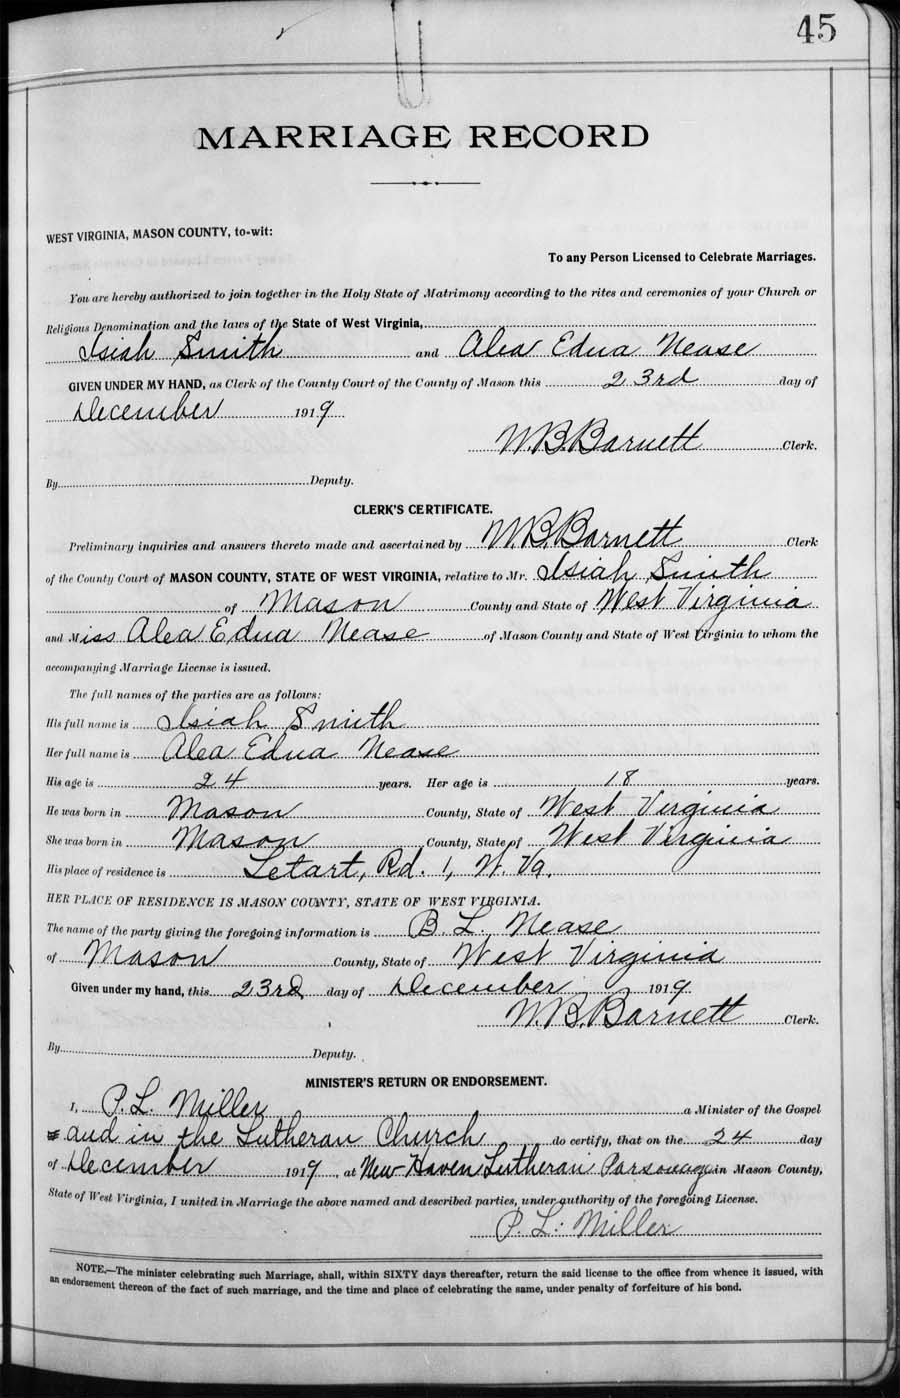 45
MARRIAGE RECORD
WEST VIRGINIA, MASON COUNTY, to-wit:
To any Person Licensed to Celebrate Marriages.
You are hereby authorized to join together in the Holy State of Matrimony according to the rites and ceremonies of your Church or
Religious Denomination and the laws of the State of West Virginia,
Isiah Smith and Alea Edna Nease
GIVEN UNDER MY HAND, as Clerk of the County Court of the County of Mason this 23rd day of
December 1919
W.B. Barnett Clerk.
By Deputy.
CLERK'S CERTIFICATE.
Preliminary inquiries and answers thereto made and ascertained by W.B. Barnett Clerk
of the County Court of MASON COUNTY, STATE OF WEST VIRGINIA, relative to Mr. Isiah Smith
of Mason County and State of West Virginia
and Miss Alea Edna Nease of Mason County and State of West Virginia to whom the
accompanying Marriage License is issued.
The full names of the parties are as follows:
His full name is Isiah Smith
Her full name is Alea Edna Nease
His age is 24 years. Her age is 18 years.
He was born in Mason County, State of West Virginia
She was born in Mason County, State of West Virginia
His place of residence is Letart, Rd. 1, W. Va.
HER PLACE OF RESIDENCE IS MASON COUNTY, STATE OF WEST VIRGINIA.
The name of the party giving the foregoing information is B. L. Nease
of Mason County, State of West Virginia
Given under my hand, this 23rd day of December 1919
W.B. Barnett Clerk.
By Deputy.
MINISTER'S RETURN OR ENDORSEMENT.
I, P. L. Miller a Minister of the Gospel
and in the Lutheran Church do certify, that on the 24 day
of December 1919, at New Haven Lutheran Parsonage in Mason County,
State of West Virginia, I united in Marriage the above named and described parties, under authority of the foregoing License.
P. L. Miller
NOTE.—The minister celebrating such Marriage, shall, within SIXTY days thereafter, return the said license to the office from whence it issued, with
an endorsement thereon of the fact of such marriage, and the time and place of celebrating the same, under penalty of forfeiture of his bond.